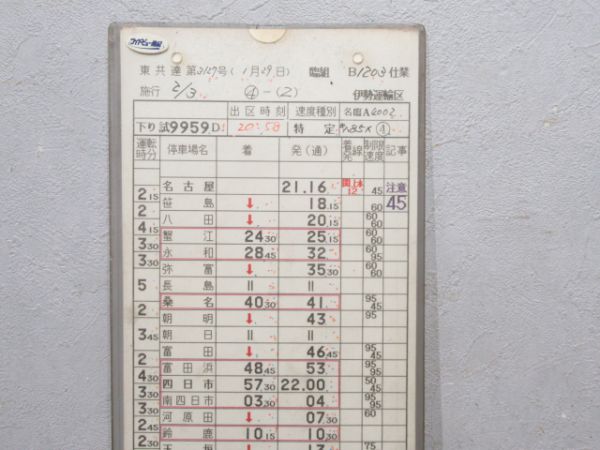 ワイドビュー南紀
東共達第3127号(1月29日) 臨組 B1203仕業
施行 2/3 ④-(2) 伊勢運輸区
出区時刻 速度種別 名臨A4002
下り 試9959D 20:58 特定 キハ85× ④
運転時分 停車場名 着 発(通) 着発線 制限速度 記事
名古屋 21.16 45 注意
2 15 笹島 ↓ 18.15 60 45
2 八田 ↓ 20.15 60 60
4 15 蟹江 24 30 25.15 60 60
3 30 永和 28 45 32 60 95
3 30 弥富 ↓ 35 30 60 60
5 長島 || ||
桑名 40 30 41 95 45
2 朝明 ↓ 43 95
3 45 朝日 || ||
富田 ↓ 46.45 95 45
2 富田浜 48 45 53 95 95
4 30 四日市 57 30 22.00 50 45
3 30 南四日市 03 30 04 95 95
3 30 河原田 ↓ 07 30 60
2 45 鈴鹿 10 15 10 30
2 30 玉垣 ↓ 13 75